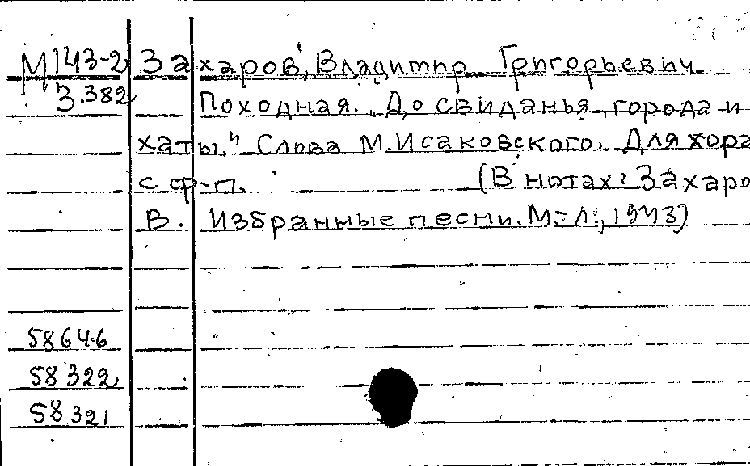 М143-2 Захаров, Владимир Григорьевич.
З.382 Походная. "До свиданья, города и
хаты." Слова М. Исаковского. Для хора
с ф-п. (В нотах: Захаро
В. Избранные песни. М-Л., 1943)
58646
58322
58321